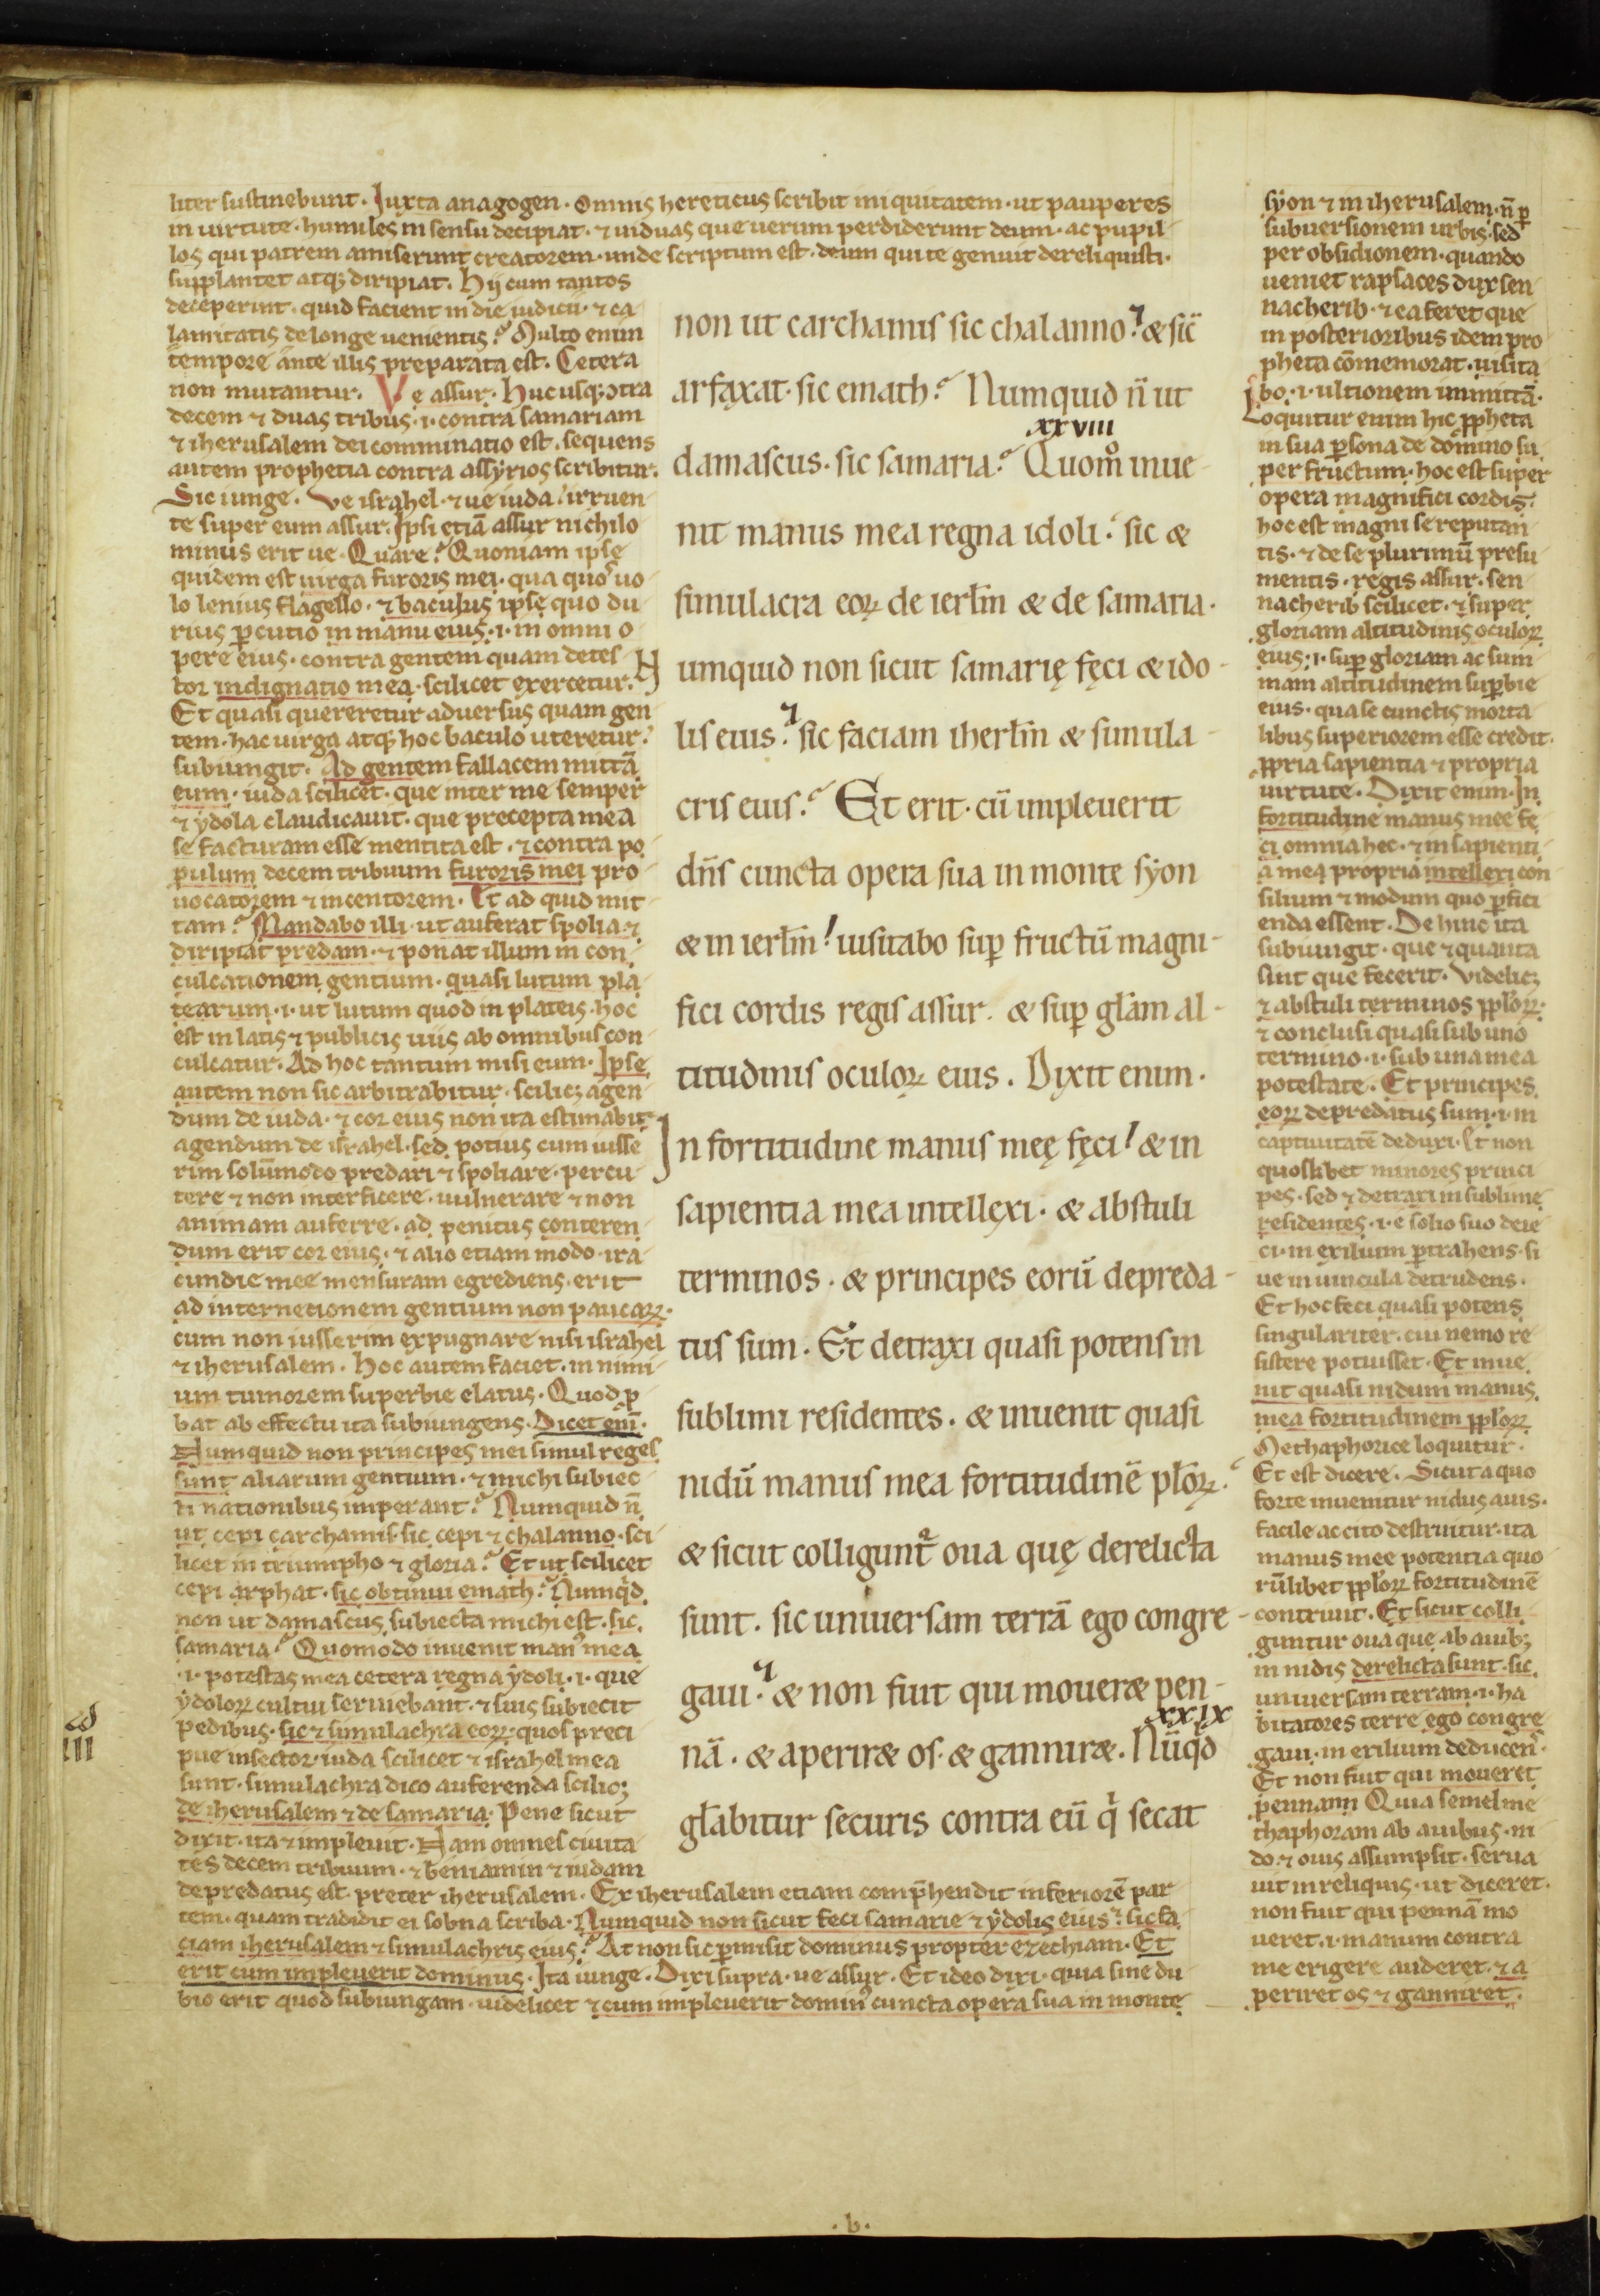 liter sustinebunt. Juxta anagogen. omnis hereticus scribit iniquitatem. ut pauperes
in uirtute. humiles in sensu decipiat. ⁊ uiduas que uerum perdiderunt deum. ac pupil-
los qui patrem amiserunt creatorem. unde scriptum est. deum qui te genuit dereliquisti.
supplantet atq; diripiat. Hij cum tantos
deceperint. quid facient in die iudicii. ⁊ ca
lamitatis de longe uenientis? Multo enim
tempore ante illis preparata est. Cetera
non mutantur. Ve assur. Hucusq; ↄtra
decem ⁊ duas tribus .i. contra samariam
⁊ iherusalem dei comminatio est. sequens
autem prophetia contra assyrios scribitur.
Sic iunge. Ve israhel. ⁊ ue iuda! irruen-
te super eum assur. Ipsi etiā assur nichilo
minus erit ue. Quare? Quoniam ipse
quidem est uirga furoris mei. qua quos uo-
lo lenius flagello. ⁊ baculus ipse quo du
rius ꝑcutio in manu eius .i. in omni o
pere eius. contra gentem quam detes
tor indignatio mea. scilicet exercetur.
Et quasi quereretur aduersus quam gen
tem. hac uirga atq; hoc baculo uteretur.
subiungit. Ad gentem fallacem mittā
eum. iuda scilicet. que inter me semper
⁊ ydola claudicauit. que precepta mea
se facturam esse mentita est. ⁊ contra po
pulum decem tribuum furoris mei pro
uocatorem ⁊ incentorem. Et ad quid mit
tam? Mandabo illi. ut auferat spolia ⁊
diripiat predam. ⁊ ponat illum in con
culcationem gentium. quasi lutum pla
tearum .i. ut lutum quod in plateis. hoc
est in latis ⁊ publicis uiis ab omnibus con
culcatur. Ad hoc tantum misi eum. Ipse
autem non sic arbitrabitur. scilic; agen
dum de iuda. ⁊ cor eius non ita estimabit
agendum de israhel. sed potius cum iusse
rim solūmodo predari ⁊ spoliare. percu
tere ⁊ non interficere. uulnerare ⁊ non
animam auferre. ad penitus conteren
dum erit cor eius. ⁊ alio etiam modo. ira
cundie mee mensuram egrediens. erit
ad internetionem gentium non paucaꝝ.
cum non iusserim expugnare nisi israhel
⁊ iherusalem. Hoc autem faciet. in nimi
um tumorem superbie elatus. Quod ꝓ
bat ab effectu ita subiungens. Dicet enī.
Numquid non principes mei simul reges
sunt aliarum gentium. ⁊ michi subiec
ti nationibus imperant? Numquid n̄
ut cepi carchamis. sic cepi ⁊ chalanno. sci
licet in triumpho ⁊ gloria? Et ut scilicet
cepi arphat. sic obtinui emath? Numqd
non ut damascus subiecta michi est. sic
samaria? Quomodo inuenit man⁹ mea
.i. potestas mea cetera regna ydoli .i. que
ydoloꝝ cultui seruiebant. ⁊ suis subiecit
pedibus. sic ⁊ simulachra eoꝝ. quos preci
pue insector. iuda scilicet ⁊ israhel mea
sunt. simulachra dico auferenda scilic;
de iherusalem ⁊ de samaria. Pene sicut
dixit. ita ⁊ impleuit. Nam omnes ciuita
tes decem tribuum. ⁊ beniamin ⁊ iudam
depredatus est. preter iherusalem. Ex iherusalem etiam comp̄hendit inferiorē par
tem. quam tradidit ei sobna scriba. Numquid non sicut feci samarie ⁊ ydolis eius? sic fa
ciam iherusalem ⁊ simulachris eius? At non sic ꝑmisit dominus propter ezechiam. Et
erit cum impleuerit dominus. Ita iunge. Dixi supra. ue assur. Et ideo dixi. quia sine du
bio erit quod subiungam. uidelicet ⁊ cum impleuerit domin⁹ cuncta opera sua in monte
III
non ut carchamis sic chalanno? & sic̄
arfaxat. sic emath? Numquid n̄ ut
xxviii
damascus. sic samaria? Quom̊ inue-
nit manus mea regna idoli. sic &
simulacra eoꝝ de ierl̄m & de samaria.
Numquid non sicut samarię fęci & ido-
lis eius? sic faciam iherl̄m & simula-
cris eius? Et erit. cū impleuerit
dn̄s cuncta opera sua in monte syon
& in ierl̄m! uisitabo suꝑ fructū magni-
fici cordis regis assur. & suꝑ gl̄am al-
titudinis oculoꝝ eius. Dixit enim.
In fortitudine manus meę fęci! & in
sapientia mea intellexi. & abstuli
terminos. & principes eorū depreda-
tus sum. Et detraxi quasi potens in
sublimi residentes. & inuenit quasi
nidū manus mea fortitudinē pl̄oꝝ.
& sicut colligunt᷑ oua quę derelicta
sunt. sic uniuersam terrā ego congre-
gaui. & non fuit qui mouer& pen-
xxix
nā. & aperir& os. & gannir&. Nūqd
gl̄abitur securis contra eū q̇ secat
syon ⁊ in iherusalem. n̄ ꝑ
subuersionem urbis. sed
per obsidionem. quando
ueniet rapsaces dux sen
nacherib. ⁊ ea feret que
in posterioribus idem pro
pheta cōmemorat. uisita
bo .i. ultionem inmittā.
Loquitur enim hic ꝓpheta
in sua ꝑsona de domino su
per fructum. hoc est super
opera magnifici cordis.
hoc est magni se reputan
tis. ⁊ de se plurimū presu
mentis. regis assur. sen
nacherib scilicet. ⁊ super
gloriam altitudinis oculoꝝ
eius .i. suꝑ gloriam ac sum
mam altitudinem suꝑbie
eius. qua se cunctis morta
libus superiorem esse credit.
ꝓpria sapientia ⁊ propria
uirtute. Dixit enim. In
fortitudine manus mee fe
ci omnia hec. ⁊ in sapienti
a mea propria intellexi con
silium ⁊ modum quo ꝑfici
enda essent. Dehinc ita
subiungit. que ⁊ quanta
sint que fecerit. Videlic;
⁊ abstuli terminos ppl̄oꝝ.
⁊ conclusi quasi sub uno
termino .i. sub una mea
potestate. Et principes
eoꝝ depredatus sum .i. in
captiuitatē deduxi. Et non
quoslibet minores princi
pes. sed ⁊ detraxi in sublime
residentes .i. e solio suo deie
ci. in exilium ꝑtrahens. si
ue in uincula detrudens.
Et hoc feci quasi potens
singulariter. cui nemo re
sistere potuisset. Et inue
nit quasi nidum manus
mea fortitudinem ppl̄oꝝ
Methaphorice loquitur.
Et est dicere. Sicut a quo
forte inuenitur nidus auis.
facile ac cito destruitur. ita
manus mee potentia quo
rūlibet ppl̄oꝝ fortitudinē
contriuit. Et sicut colli
guntur oua que ab auib;
in nidis derelicta sunt. sic
uniuersam terram .i. ha
bitatores terre ego congre
gaui. in exilium deducen̄.
Et non fuit qui moueret
pennam Quia semel me
thaphoram ab auibus. ni
do ⁊ ouis assumpsit. serua
uit in reliquis. ut diceret.
non fuit qui pennā mo
ueret .i. manum contra
me erigere auderet. ⁊ a
periret os ⁊ ganniret.
.b.